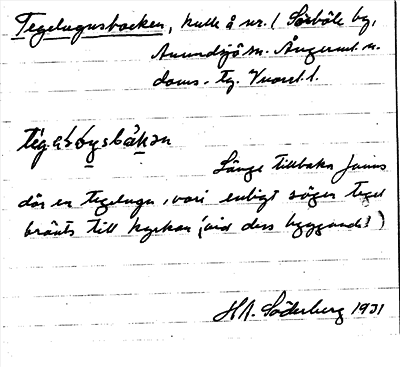 Tegelugnsbacken, kulle å nr. 1 Sörböle by,
Anundsjö sn. Ångerml. n.
doms. tg. Vnorrl. l.
Länge tillbaka fanns
där en tegelugn, vari enligt sägen tegel
bränts till kyrkan (vid dess byggande?)
H.A. Söderberg 1931